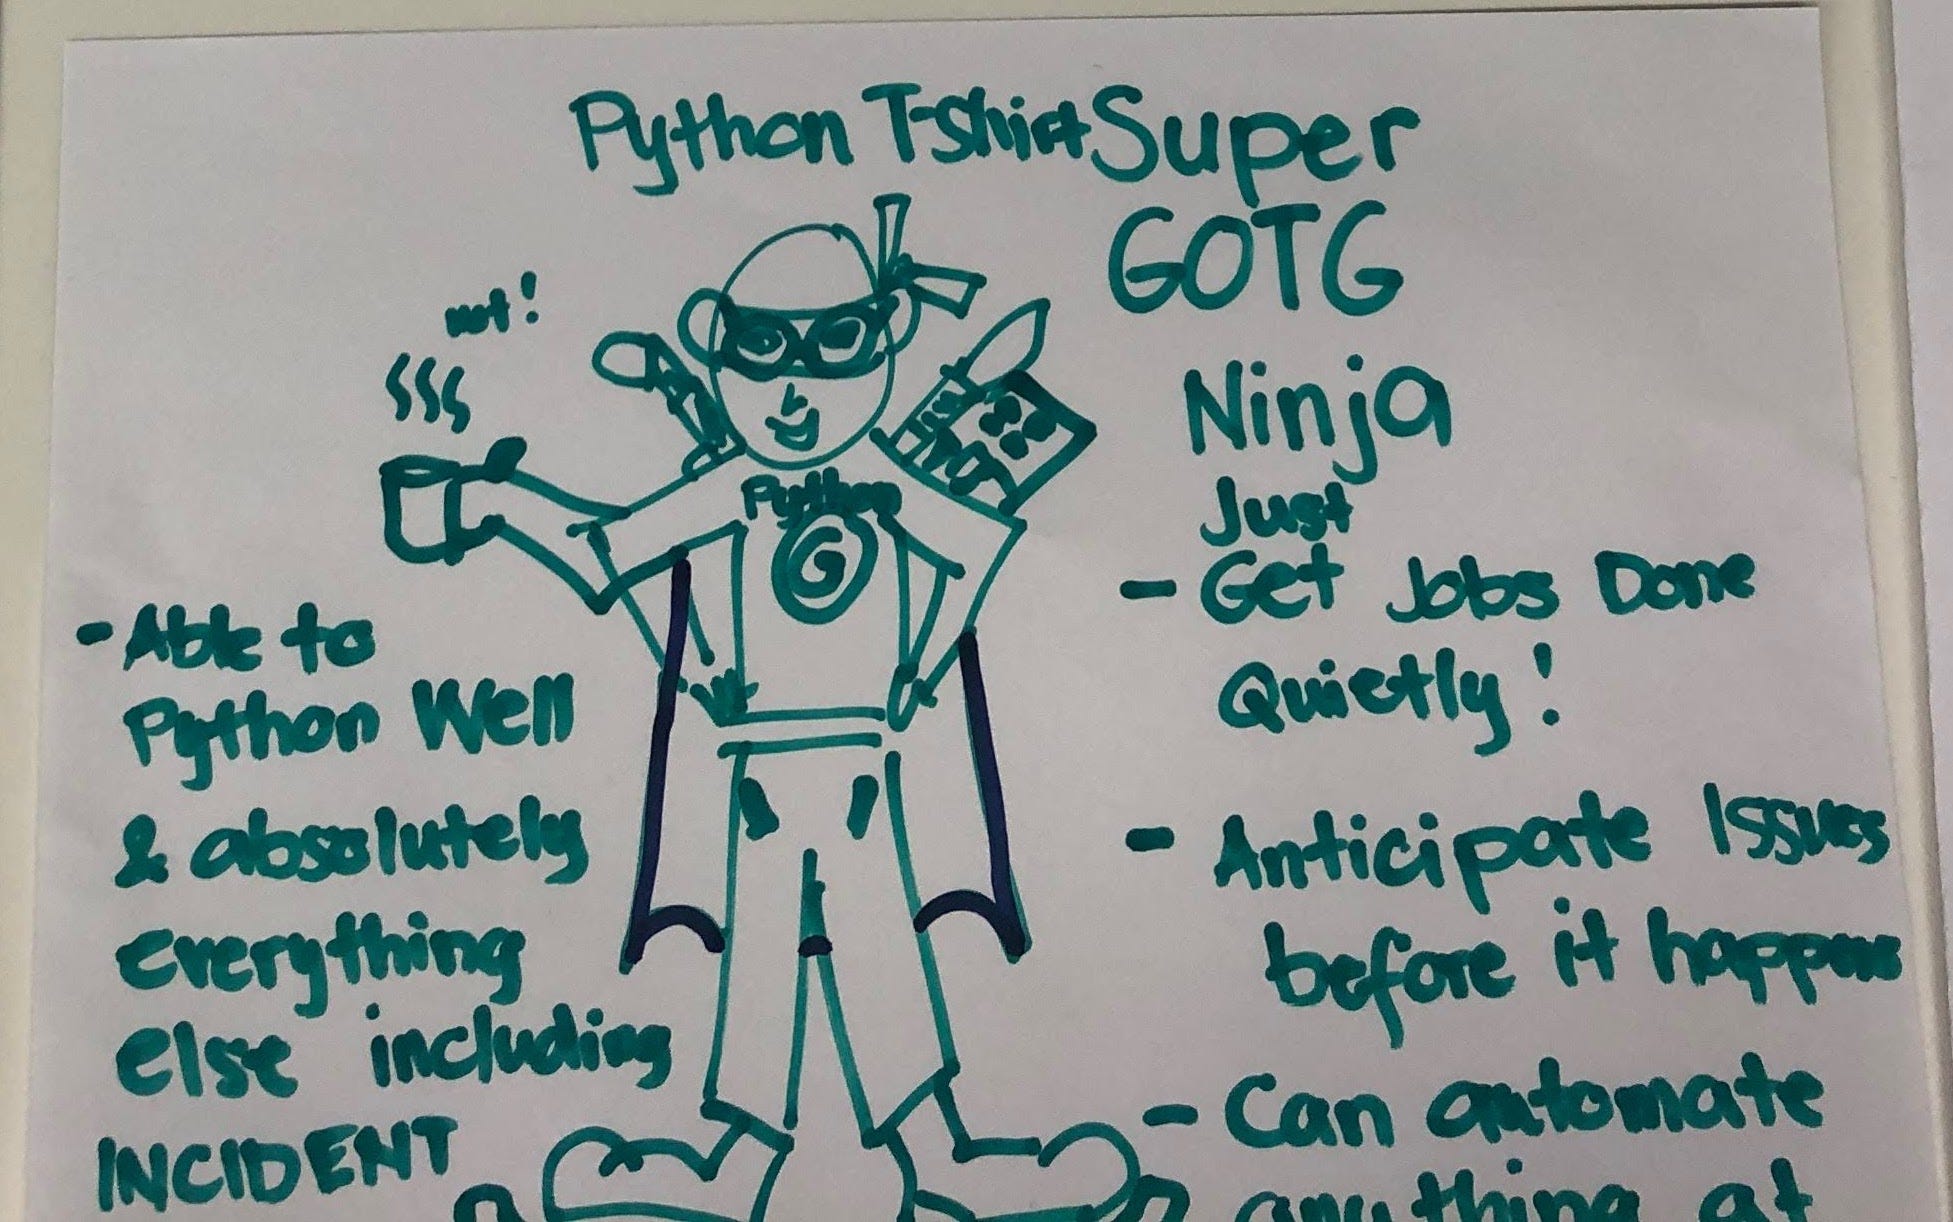 Python T-shirt Super
GOTG
Ninja
Just
- Get Jobs Done
Quietly!
- Anticipate Issues
before it happens
- Can automate
anything at
Python
G
- Able to
Python Well
& absolutely
everything
else including
INCIDENT